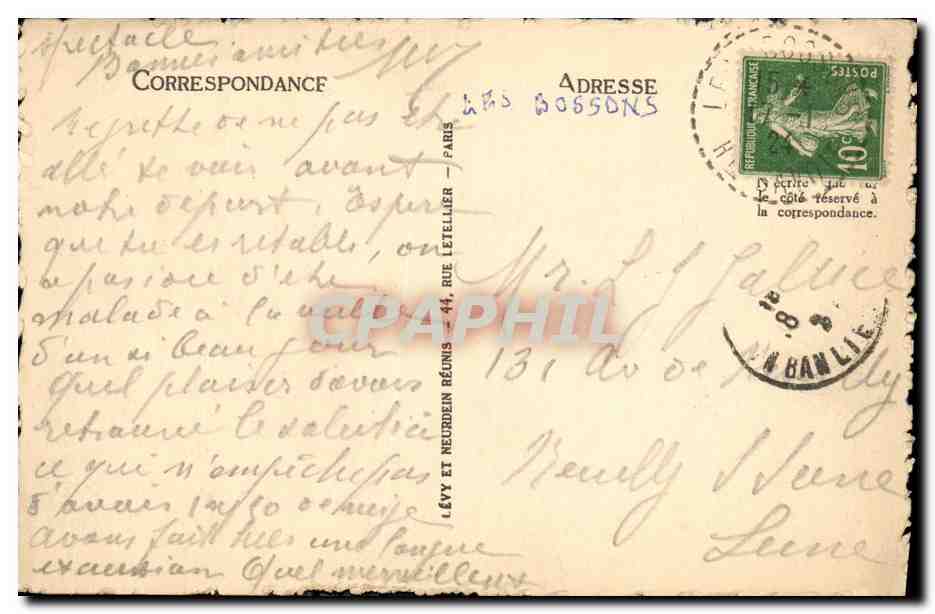 spectacle
Bonnes amitiés
CORRESPONDANCE
Regrette de ne pas être
allé te voir avant
notre départ. Espère
que tu es rétabli, on
a pas idée d'être
malade à la veille
d'un si beau jour
Quel plaisir d'avoir
retrouvé le soleil ici
ce qui n'empêche pas
d'avoir 1m50 de neige
avons fait hier une longue
excursion Quel merveilleux
LÉVY ET NEURDEIN RÉUNIS — 44, RUE LETELLIER — PARIS
ADRESSE
LES BOSSONS
REPUBLIQUE FRANÇAISE
POSTES
10c
N'écrire que sur
le côté réservé à
la correspondance.
Mr.
131 Av de Neuilly
Neuilly s/Seine
Seine
BANLIEUE
CPAPHIL